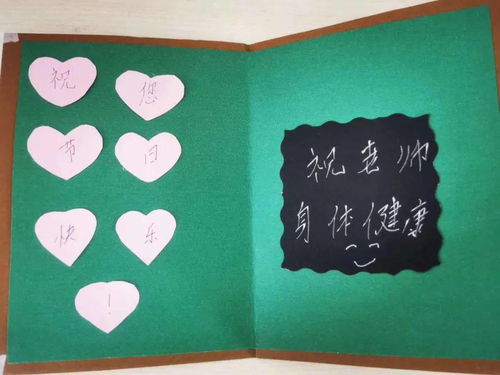 祝您
节日
快乐
!
祝老师
身体健康